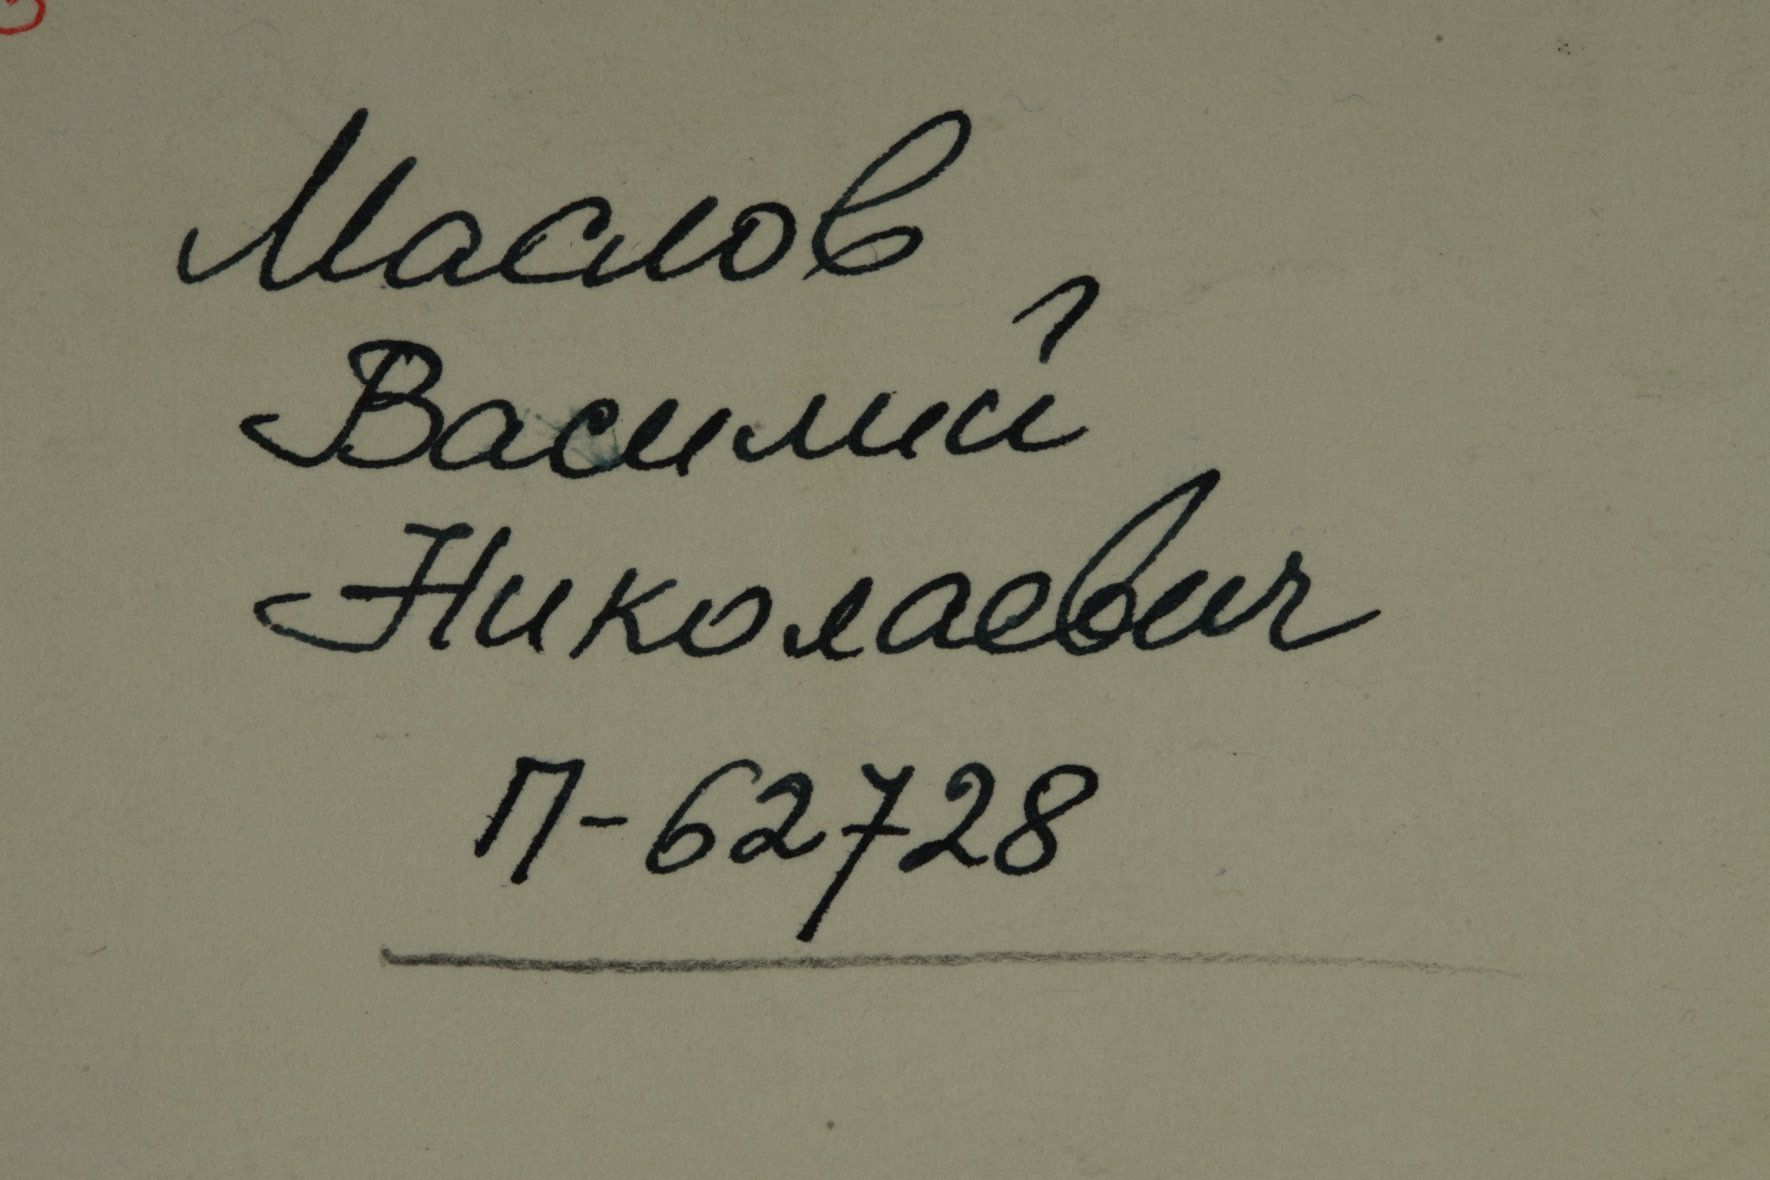 Маслов
Василий
Николаевич
П-62728